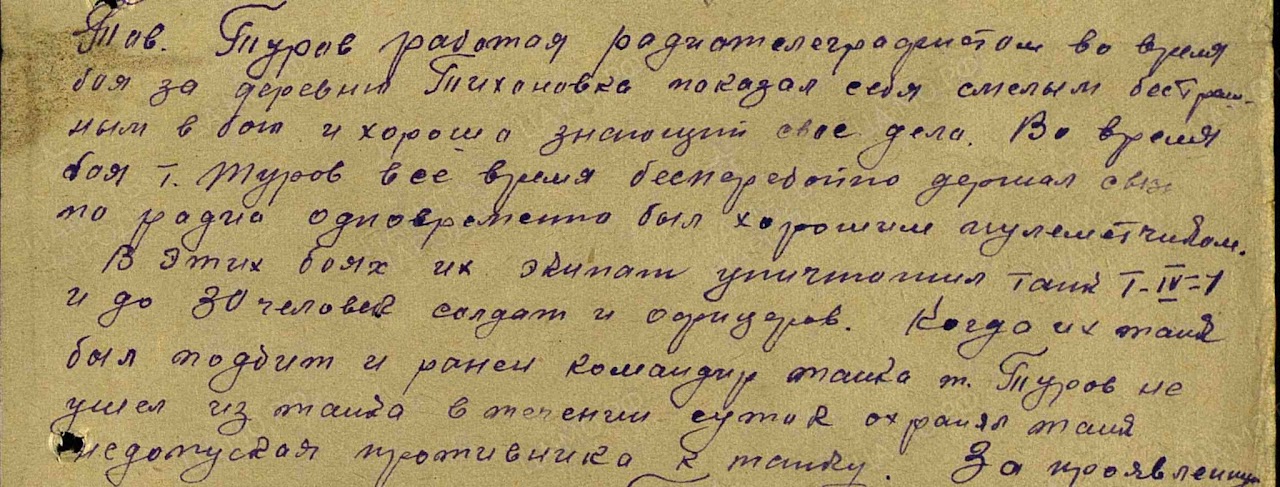 Тов. Туров работая радиотелеграфистом во время
боя за деревни Тихоновка показал себя смелым бестраш-
ным в бою и хорошо знающий свое дело. Во время
боя т. Туров всё время бесперебойно держал связ
по радио одновременно был хорошим пулеметчиком.
В этих боях их экипаж уничтожил танк Т-IV-1
и до 30 человек солдат и офицеров. Когда их танк
был подбит и ранен командир танка т. Туров не
ушел из танка в течении суток охранял танк
недопуская противника к танку. За проявленную